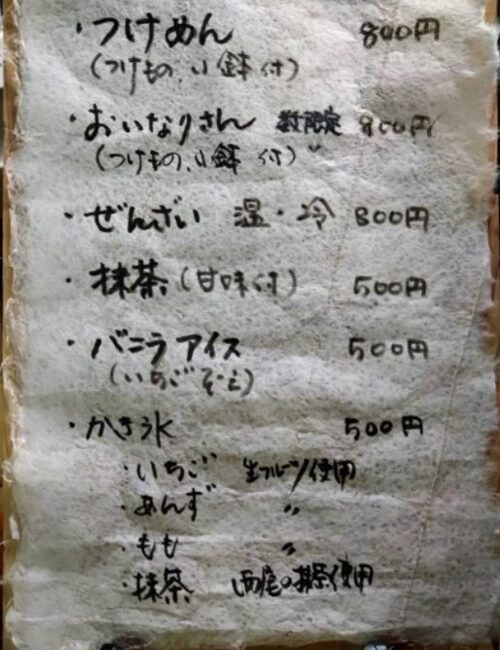 ・つけめん 800円
（つけもの、小鉢付）
・おいなりさん 数限定 800円
（つけもの、小鉢付）〃
・ぜんざい 温・冷 800円
・抹茶（甘味付） 500円
・バニラアイス 500円
（いちごぞえ）
・かき氷 500円
・いちご 生フルーツ使用
・あんず 〃
・もも 〃
・抹茶 西尾の抹茶使用